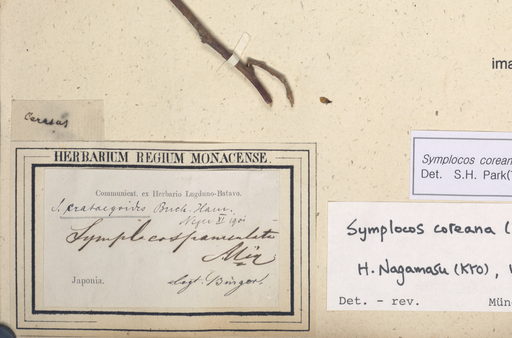 ima
Cerasus
HERBARIUM REGIUM MONACENSE.
Communicat. ex Herbario Lugduno-Batavo.
S. crataegoides Buch. Ham.
VI 1901
Symplocos paniculata
Miq
Japonia.
legt. Bürger.
Symplocos corean
Det. S.H. Park(
Symplocos coreana (
H. Nagamasu (KYO),
Det. - rev. Mün